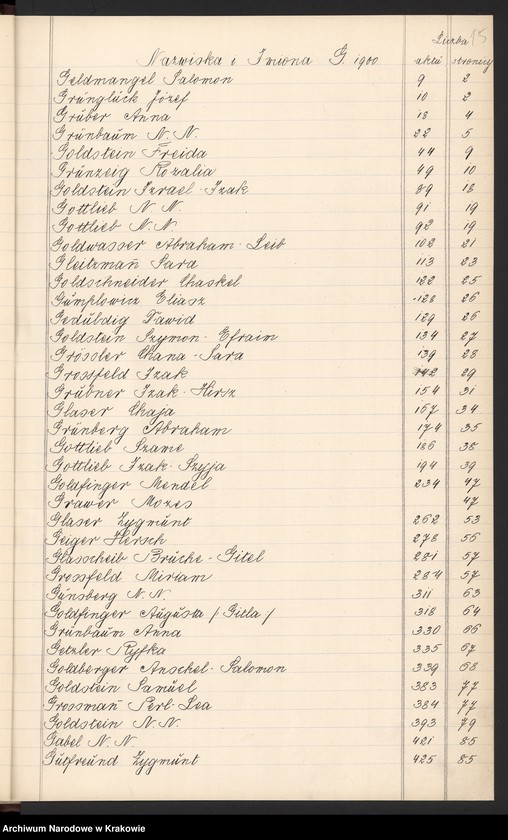 15
Liczba
Nazwiska i Imiona G. 1900 aktu stronicy
Geldmangel Salomon 9 2
Grünglück Józef 10 2
Grüber Anna 18 4
Grünbaum N. N. 22 5
Goldstein Freida 44 9
Grünzeig Rozalia 49 10
Goldstein Izrael-Izak 89 18
Gottlieb N N. 91 19
Gottlieb N. N. 92 19
Goldwasser Abraham-Leib 102 21
Gleitzman Sara 113 23
Goldschneider Chaskel 122 25
Gumplowicz Eliasz 128 26
Geduldig Dawid 129 26
Goldstein Szymon-Efraim 134 27
Grössler Chana-Sara 139 28
Grossfeld Izak 142 29
Grübner Izak-Hirsz 154 31
Glaser Chaja 167 34
Grünberg Abraham 174 35
Gottlieb Szame 186 38
Gottlieb Izak-Szyja 194 39
Goldfinger Mendel 234 47
Grawer Mozes 47
Glaser Zygmunt 262 53
Geiger Hersch 278 56
Glasscheib Brücke-Gitel 281 57
Grossfeld Miriam 284 57
Günsberg N. N. 311 63
Goldfinger Augusta /Gitla/ 318 64
Grünbaum Anna 330 66
Getzler Ryfka 335 67
Goldberger Anschel-Salomon 339 68
Goldstein Samuel 383 77
Grossman Perl-Lea 384 77
Goldstein N. N. 393 79
Gabel N. N. 421 85
Gutfreund Zygmunt 425 85
Archiwum Narodowe w Krakowie